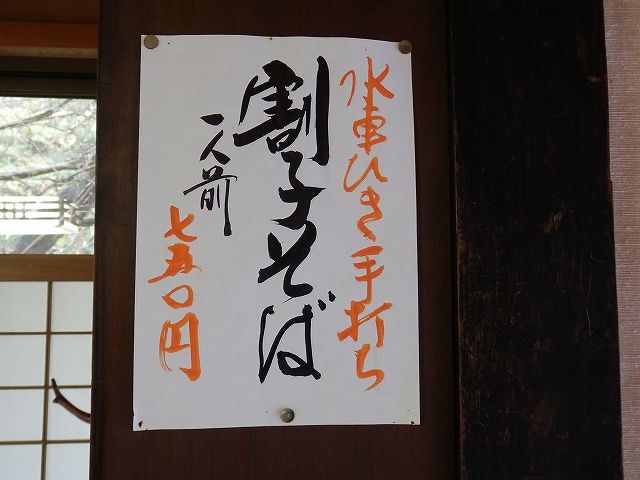 水車ひき手打ち
割子そば
一人前
七五〇円